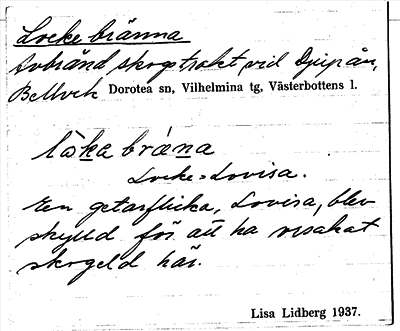 Locke bränna
Avbränd skogstrakt vid Djupån,
Bellvik Dorotea sn, Vilhelmina tg, Västerbottens l.
bräna
Locke = Lovisa.
En getarflicka, Lovisa, blev
skylld för att ha orsakat
skogeld här.
Lisa Lidberg 1937.